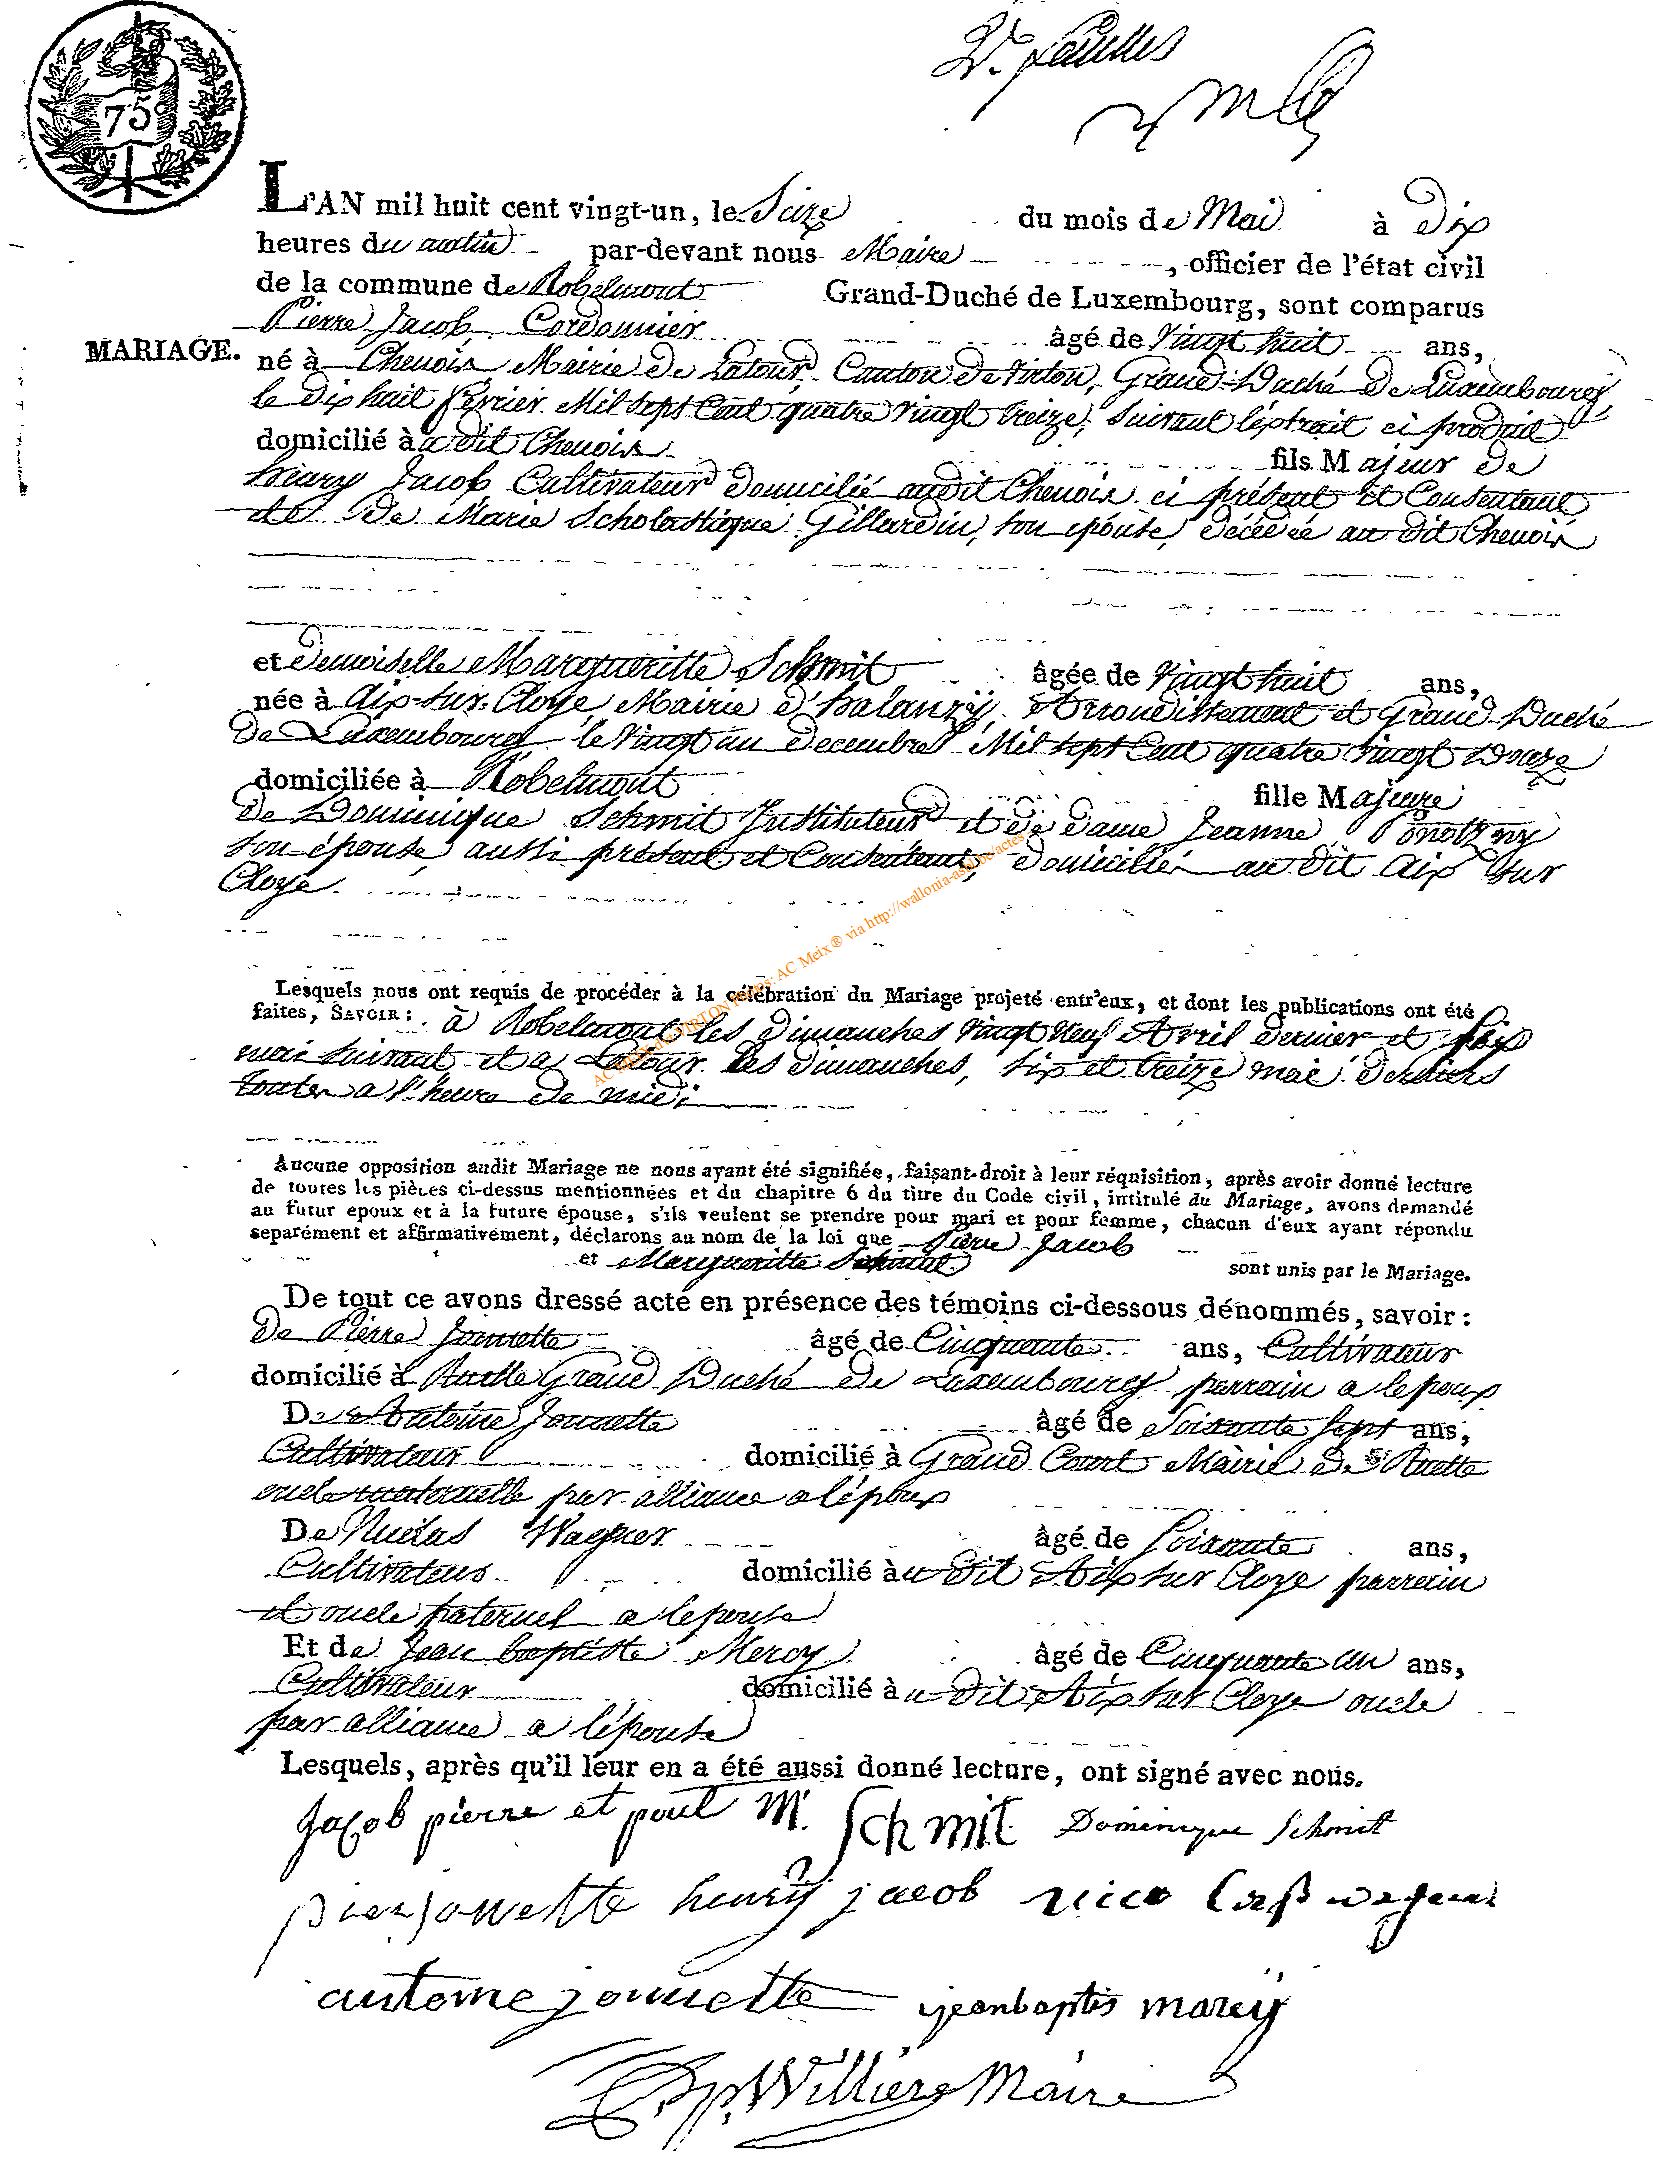 75c
L'AN mil huit cent vingt-un, le Seize du mois de Mai à Dix
heures du matin par-devant nous Maire, officier de l'état civil
de la commune de Robelmont Grand-Duché de Luxembourg, sont comparus
Pierre Jacob, Cordonnier âgé de Vingt huit ans,
MARIAGE.
né à Chenois Mairie de Latour, Canton de Virton, Grand-Duché de Luxembourg,
le dix huit février Mil sept Cent quatre vingt treize, suivant l'extrait ci produit
domicilié à u dit Chenois fils Majeur de
henry Jacob Cultivateur domicilié audit Chenois ci présent et Consentant
et de Marie Scholastique Gillardin, son épouse, décédée au dit Chenois
et demoiselle Margueritte Schmit âgée de Vingt huit ans,
née à Aix-sur-Cloye Mairie d'halanzÿ, Arrondissement et Grand Duché
de Luxembourg le Vingt un decembre Mil sept Cent quatre vingt Douze
domiciliée à Robelmont fille Majeure
de Dominique Schmit Instituteur et de dame Jeanne
son épouse, aussi présent et Consentent, domiciliés au dit Aix sur
Cloye
AC Meix® via http://wallonia-asbl.be/actes
Lesquels nous ont requis de procéder à la célébration du Mariage projeté entr'eux, et dont les publications ont été
faites, SAVOIR: à Robelmont les dimanches vingt neuf Avril dernier et six
mai suivant et a Latour les dimanches, six et treize mai derniers
toutes a l'heure de midi
Aucune opposition audit Mariage ne nous ayant été signifiée, faisant-droit à leur réquisition, après avoir donné lecture
de toutes les pièces ci-dessus mentionnées et du chapitre 6 du titre du Code civil, intitulé du Mariage, avons demandé
au futur epoux et à la future épouse, s'ils veulent se prendre pour mari et pour femme, chacun d'eux ayant répondu
separément et affirmativement, déclarons au nom de la loi que Pierre Jacob
et Margueritte Schmit sont unis par le Mariage.
De tout ce avons dressé acte en présence des témoins ci-dessous dénommés, savoir:
De Pierre Jonnette âgé de Cinquante ans, Cultivateur
domicilié à Ruette Grand Duché de Luxembourg parrain a lepoux
De Antoine Jonnette âgé de Soixante sept ans,
Cultivateur domicilié à Grand Court Mairie de Ruette
oncle maternelle par alliance a lépoux
De Nicolas Wagner âgé de Soixante ans,
Cultivateur domicilié à u dit Aix sur Cloye parrain
et oncle paternel a lepouse
Et de Jean baptiste Mercy âgé de Cinquante un ans,
Cultivateur domicilié à u dit Aix sur Cloye oncle
par alliance a lépouse
Lesquels, après qu'il leur en a été aussi donné lecture, ont signé avec nous.
Jacob pierre et poul M. Schmit Dominique Schmit
pier jonnette henrÿ jacob
antoine jonnette jeanbaptis marcÿ
Willière Maire